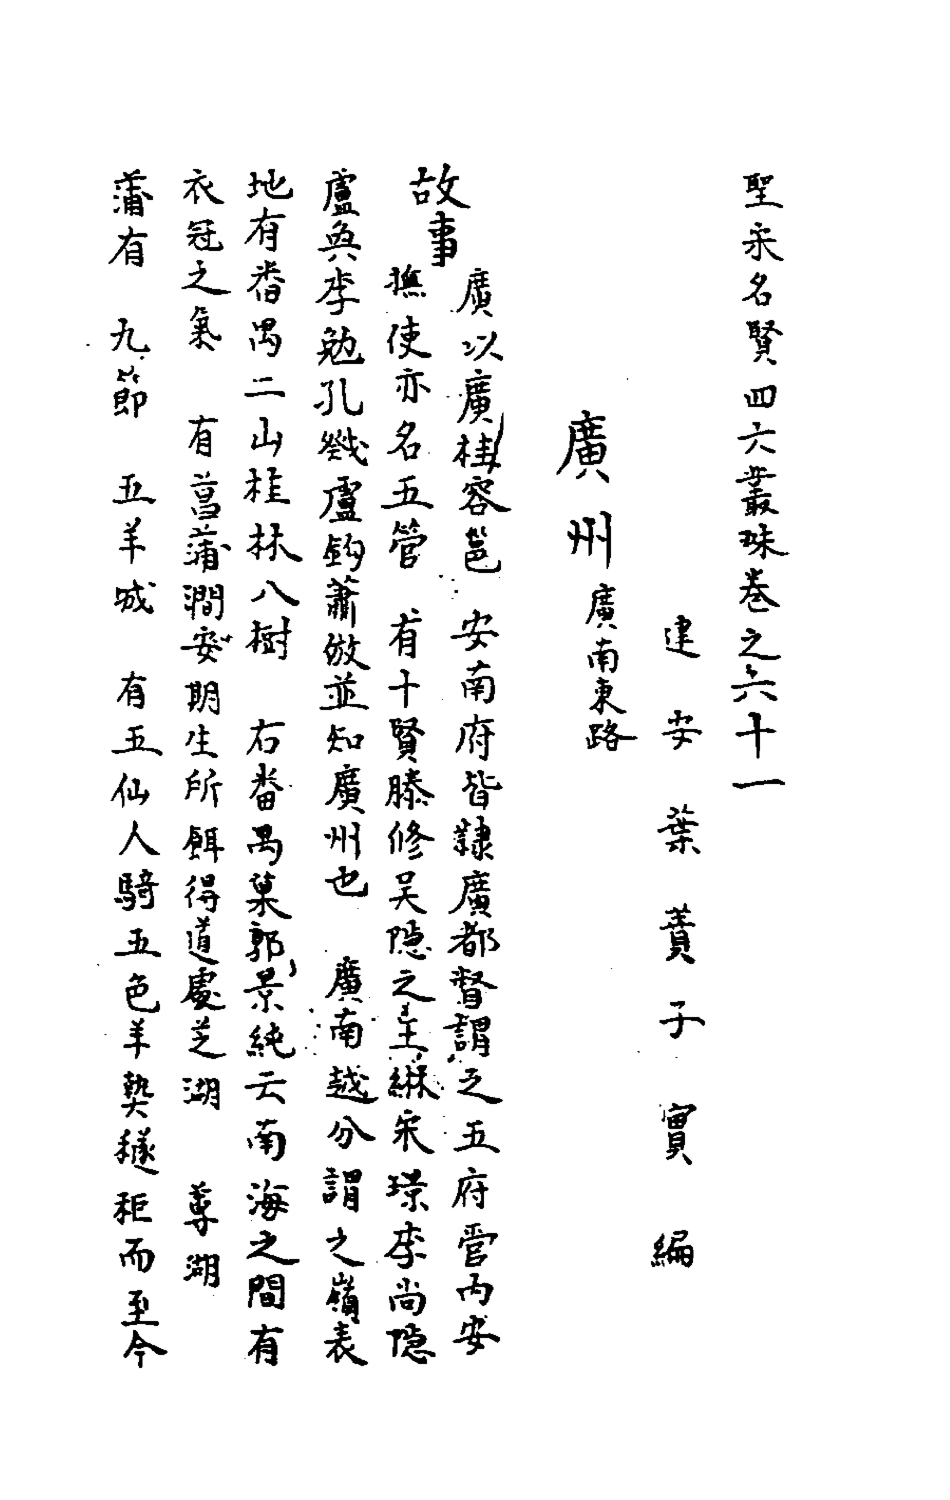 聖宋名賢四六叢珠卷之六十一
建安葉蕡子實編
廣州廣南東路
故事
廣以廣桂容邕 安南府皆隸廣都督謂之五府管内安
撫使亦名五管 有十賢滕修吳隐之王綝宋璟李尚隐
盧奐李勉孔戣盧鈞蕭倣並知廣州也 廣南越分謂之嶺表
地有番禺二山桂林八樹 右番禺巢郭景純云南海之間有
衣冠之氣 有菖蒲澗安期生所餌得道處芝湖 尊湖
蒲有 九節 五羊城 有五仙人騎五色羊執穟秬而至今